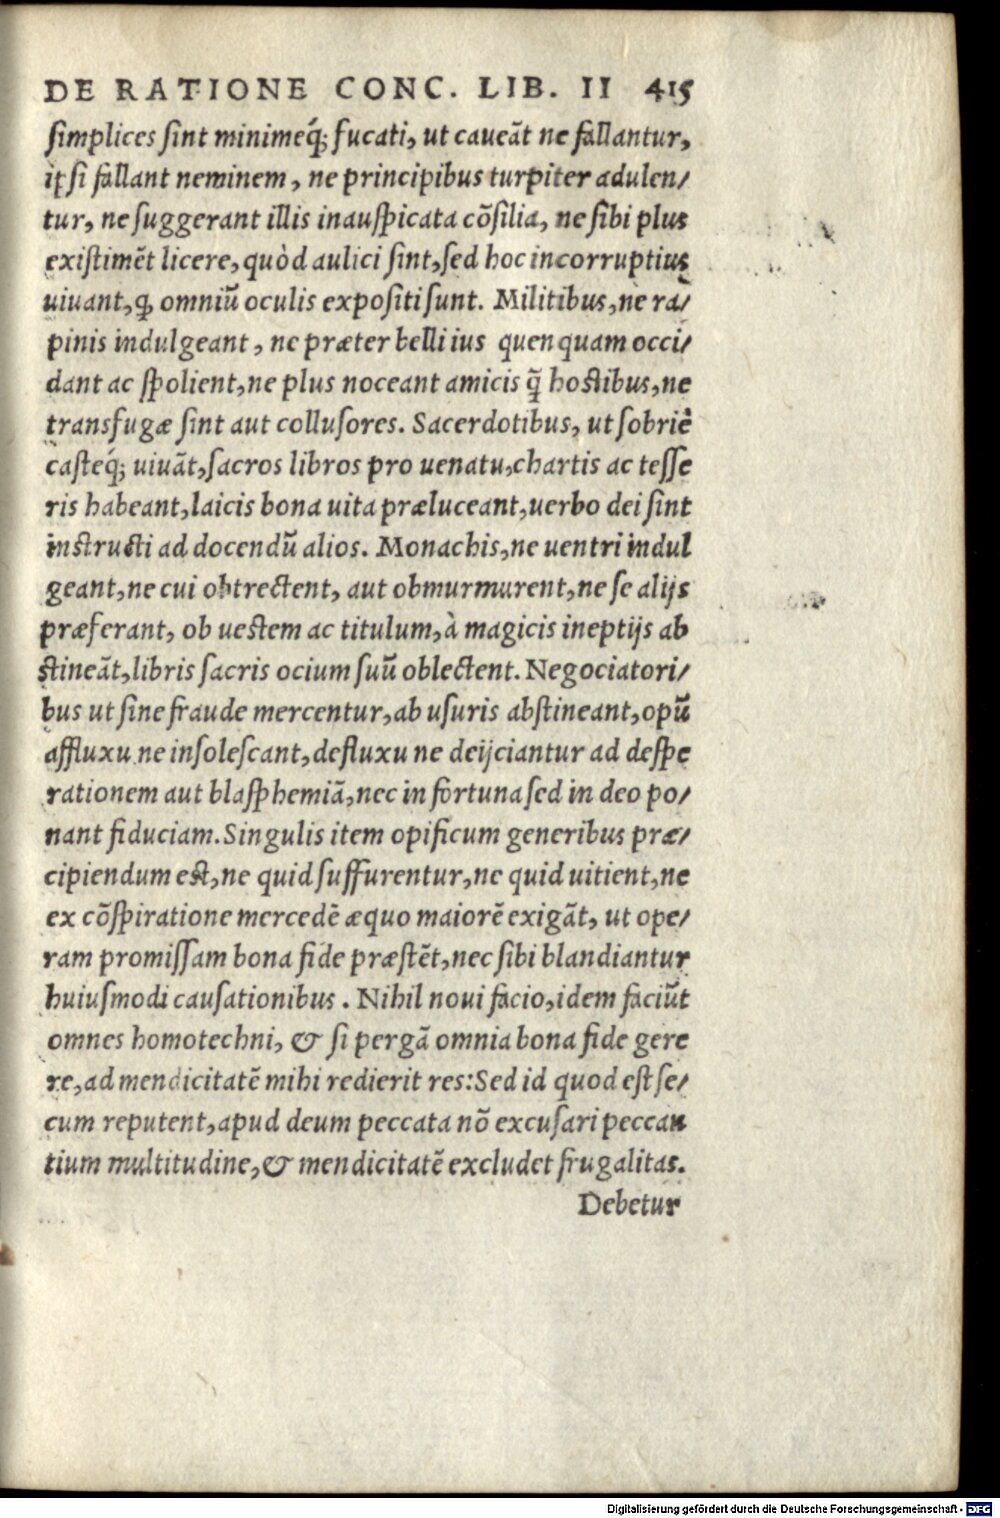 DE RATIONE CONC. LIB. II 415
simplices sint minimeq́; fucati, ut caueāt ne fallantur,
ipsi fallant neminem, ne principibus turpiter adulen/
tur, ne suggerant illis inauspicata cōsilia, ne sibi plus
existimēt licere, quòd aulici sint, sed hoc incorruptius
uiuant, ꝙ omniū oculis expositi sunt. Militibus, ne ra/
pinis indulgeant, ne præter belli ius quenquam occi/
dant ac spolient, ne plus noceant amicis q̄̃ hostibus, ne
transfugæ sint aut collusores. Sacerdotibus, ut sobriè
casteq́; uiuāt, sacros libros pro uenatu, chartis ac tesse
ris habeant, laicis bona uita præluceant, uerbo dei sint
instructi ad docendū alios. Monachis, ne uentri indul
geant, ne cui obtrectent, aut obmurmurent, ne se alijs
præferant, ob uestem ac titulum, à magicis ineptijs ab
stineāt, libris sacris ocium suū oblectent. Negociatori/
bus ut sine fraude mercentur, ab usuris abstineant, opū
affluxu ne insolescant, defluxu ne deijciantur ad despe
rationem aut blasphemiā, nec in fortuna sed in deo po/
nant fiduciam. Singulis item opificum generibus præ/
cipiendum est, ne quid suffurentur, ne quid uitient, ne
ex cōspiratione mercedē æquo maiorē exigāt, ut ope/
ram promissam bona fide præstēt, nec sibi blandiantur
huiusmodi causationibus. Nihil noui facio, idem faciūt
omnes homotechni, & si pergā omnia bona fide gere
re, ad mendicitatē mihi redierit res: Sed id quod est se/
cum reputent, apud deum peccata nō excusari peccan
tium multitudine, & mendicitatē excludet frugalitas.
Debetur
Digitalisierung gefördert durch die Deutsche Forschungsgemeinschaft - DFG